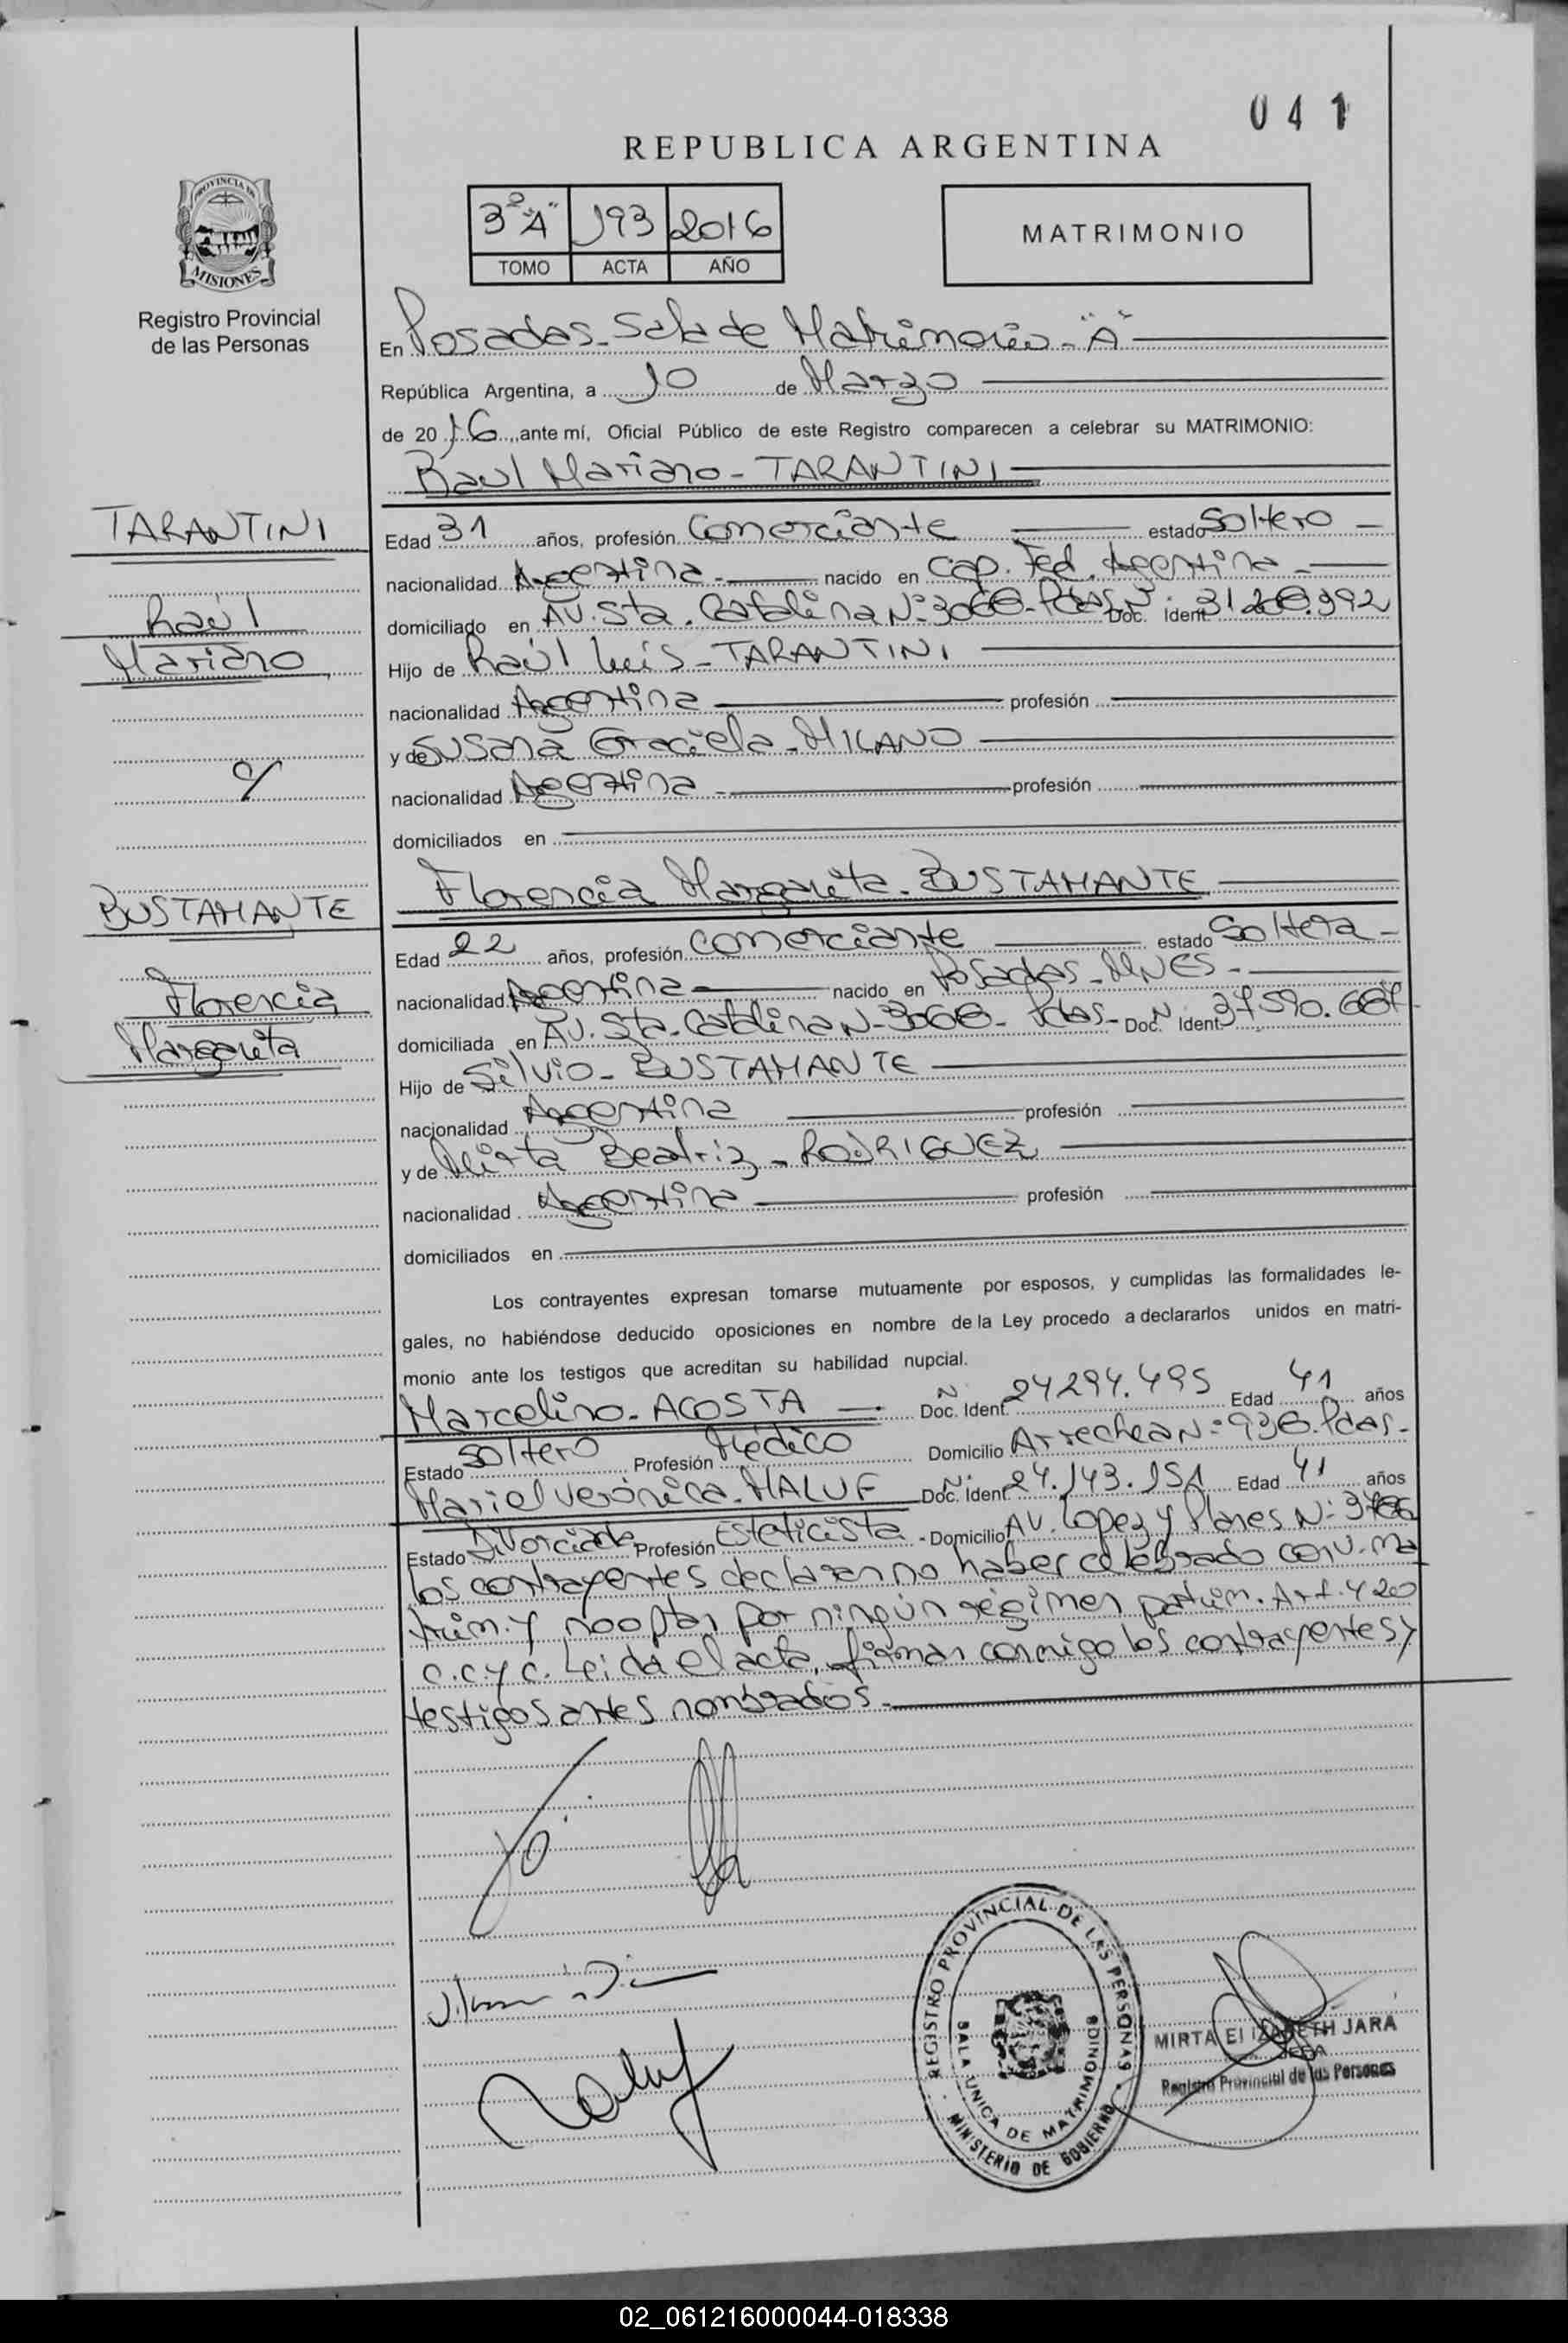 041
REPUBLICA ARGENTINA
3º "A" 193 2016
TOMO ACTA AÑO
MATRIMONIO
PROVINCIA DE MISIONES
Registro Provincial
de las Personas
En Posadas - Sala de Matrimonio - "A"
República Argentina, a 10 de Marzo
de 2016, ante mí, Oficial Público de este Registro comparecen a celebrar su MATRIMONIO:
Raul Mariano - TARANTINI
TARANTINI
Raúl
Mariano
c/
BUSTAMANTE
Florencia
Margarita
Edad 31 años, profesión Comerciante estado Soltero -
nacionalidad Argentina - nacido en Cap. Fed. Argentina -
domiciliado en Av. Sta. Catalina Nº 3068 - Pdas Nº Doc. Ident 31.992
Hijo de Raúl Luis - TARANTINI
nacionalidad Argentina profesión
y de Susana Graciela - MILANO
nacionalidad Argentina - profesión
domiciliados en
Florencia Margarita - BUSTAMANTE
Edad 22 años, profesión Comerciante estado Soltera -
nacionalidad Argentina nacido en Posadas - MNES -
domiciliada en Av. Sta. Catalina N- 3068 - Pdas - Doc. Nº Ident 37.590.687
Hijo de Silvio - BUSTAMANTE
nacionalidad Argentina profesión
y de Mirta Beatriz - RODRIGUEZ
nacionalidad Argentina profesión
domiciliados en
Los contrayentes expresan tomarse mutuamente por esposos, y cumplidas las formalidades le-
gales, no habiéndose deducido oposiciones en nombre de la Ley procedo a declararlos unidos en matri-
monio ante los testigos que acreditan su habilidad nupcial.
Marcelino - ACOSTA - Doc. Ident. Nº 24294.495 Edad 41 años
Estado Soltero Profesión Médico Domicilio Arrechea Nº 936. Pdas -
Mariel Verónica - MALUF Doc. Ident Nº 24.143.151 Edad 41 años
Estado Divorciada Profesión Esteticista - Domicilio Av. Lopez y Planes Nº
los contrayentes declaran no haber celebrado conv. ma
trim. y no optar por ningún régimen patrim. Art. 420
C.C.y C. Leída el acta, firman conmigo los contrayentes y
testigos antes nombrados -
Maluf
REGISTRO PROVINCIAL DE LAS PERSONAS
SALA UNICA DE MATRIMONIOS
MINISTERIO DE GOBIERNO
MIRTA ELIZABETH JARA
JEFA
Registro Provincial de las Personas
02_061216000044-018338